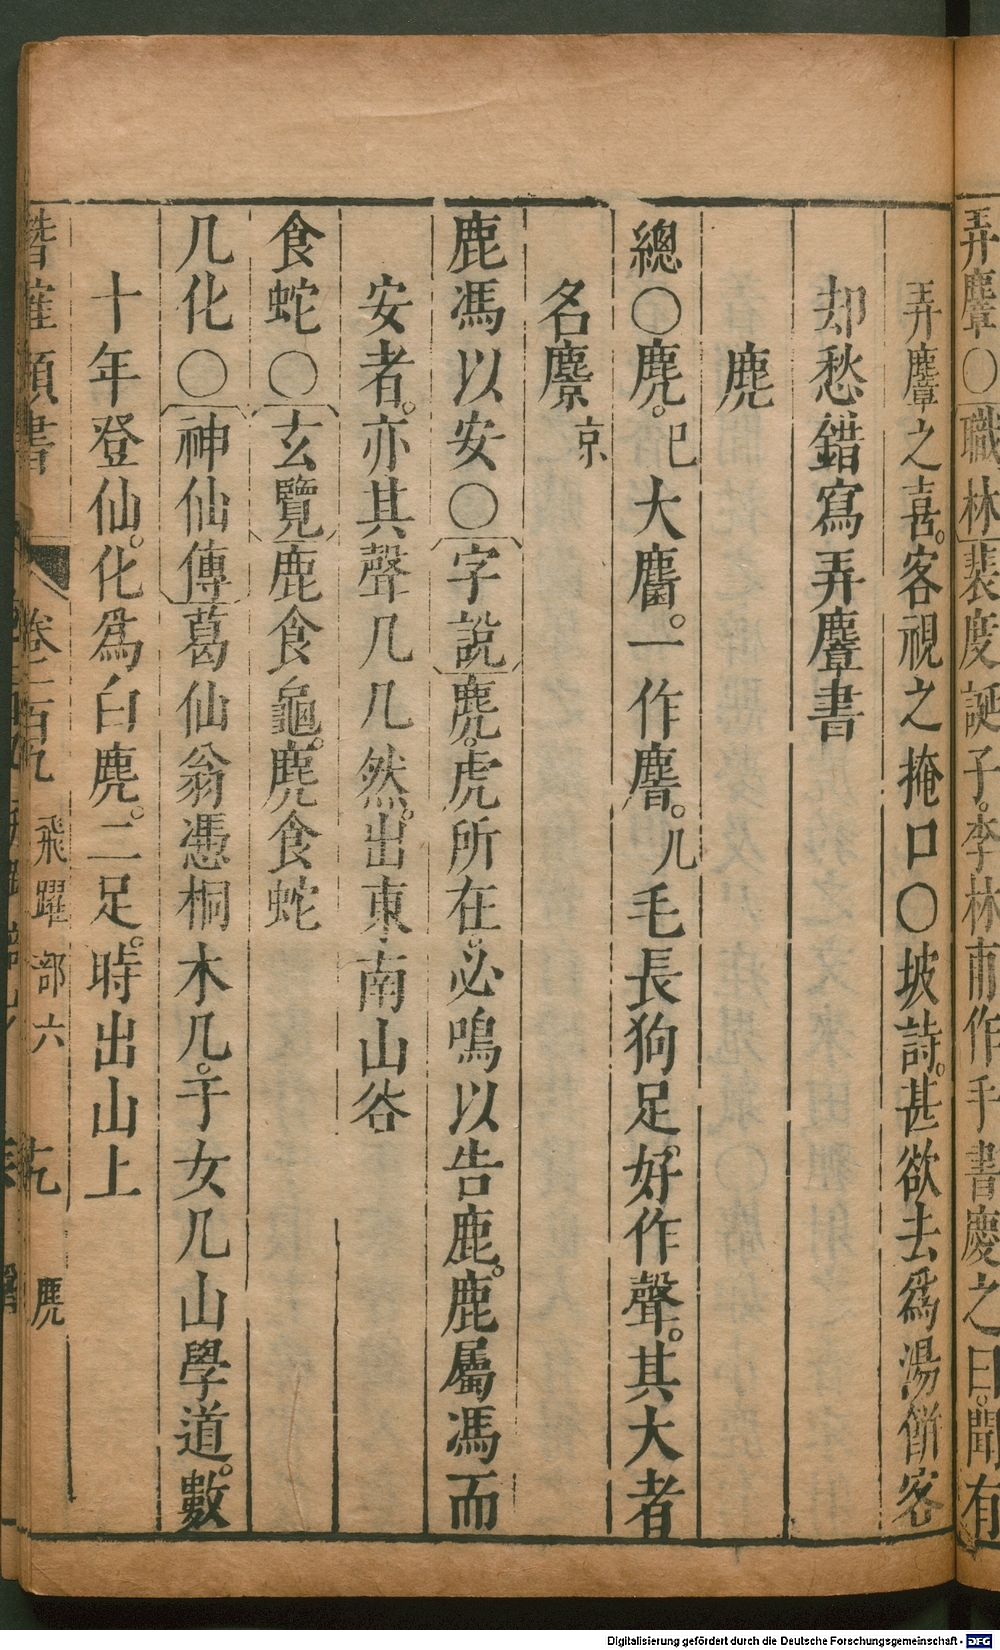 弄麞○職林裴度誕子。李林甫作手書慶之曰。聞有
弄麞之喜。客視之掩口○坡詩。甚欲去爲湯餠客
却愁錯寫弄麞書
麂
總○麂。已大麕。一作麿。几毛長狗足。好作聲。其大者
名麖京
鹿馮以安○字說麂。虎所在。必鳴以告鹿。鹿屬馮而
安者。亦其聲几几然。出東南山谷
食蛇○玄覽鹿食龜。麂食蛇
几化○神仙傳葛仙翁憑桐木几。于女几山學道。數
十年登仙。化爲白麂。二足。時出山上
潛確類書 卷一百九 飛躍部六 麂
Digitalisierung gefördert durch die Deutsche Forschungsgemeinschaft - DFG